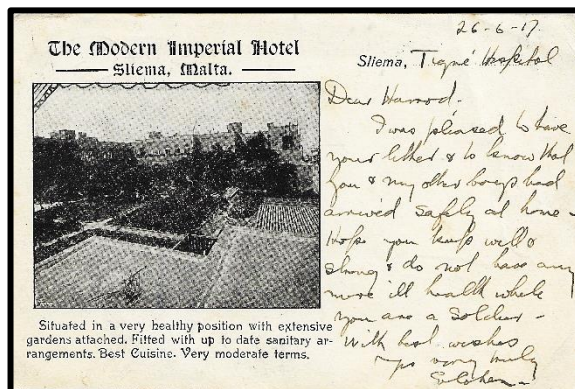 The Modern Imperial Hotel
Sliema, Malta.
Situated in a very healthy position with extensive
gardens attached. Fitted with up to date sanitary ar-
rangements. Best Cuisine. Very moderate terms.
26-6-17.
Sliema, Tigné Hospital
Dear Harrod.
I was pleased to have
your letter & to know that
you & my other boys had
arrived safely at home -
Hope you keep well &
strong & do not have any
more ill health while
you are a soldier -
With best wishes
yrs very truly